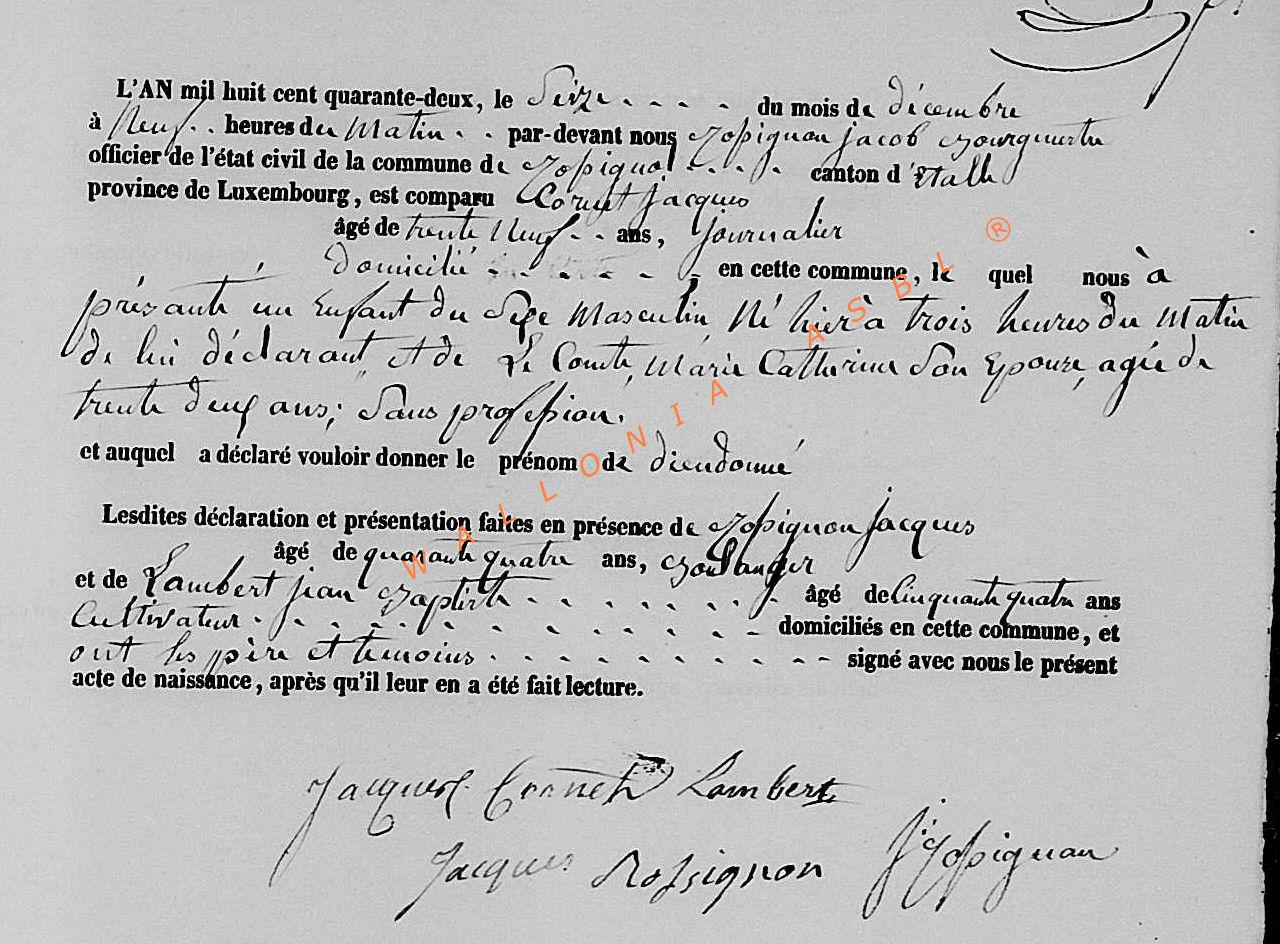 L'AN mil huit cent quarante-deux, le Seize . . . . du mois de décembre
à Neuf . . heures du Matin . . par-devant nous Rossignon jacob Bourguestre
officier de l'état civil de la commune de Rossignol . . . . canton d'étalle
province de Luxembourg, est comparu Cornet jacques
âgé de trente Neuf . . ans, journalier
domicilié . . . . . - en cette commune, le quel nous à
présanté un Enfant du Sexe Masculin Né hier à trois heures du Matin
de lui déclarant, et de Le Comte, Marie Catherine Son Epouze, agée de
trente deux ans; Sans profession.
et auquel a déclaré vouloir donner le prénom de dieudonné
Lesdites déclaration et présentation faites en présence de Rossignon jacques
âgé de quarante quatre ans, Boulanger
et de Lambert jean Baptiste . . . . . . . . âgé de Cinquante quatre ans
Cultivateur . . . . . . . . . . . . . - domiciliés en cette commune, et
ont les père et temoins . . . . . . . . . - signé avec nous le présent
acte de naissance, après qu'il leur en a été fait lecture.
Jacques Cornet Lambert
Jacques Rossignon J: Rossignon
WALLONIA ASBL ®